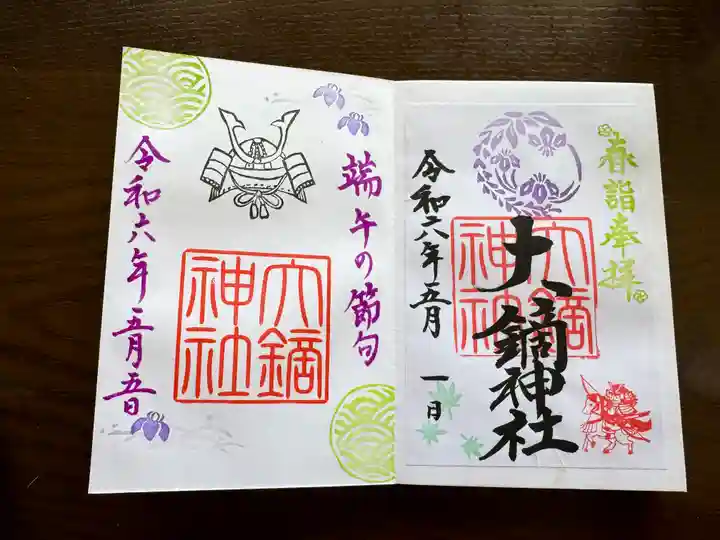 春詣奉拝
大鏑神社
大鏑
神社
令和六年五月 一日
端午の節句
大鏑
神社
令和六年五月五日